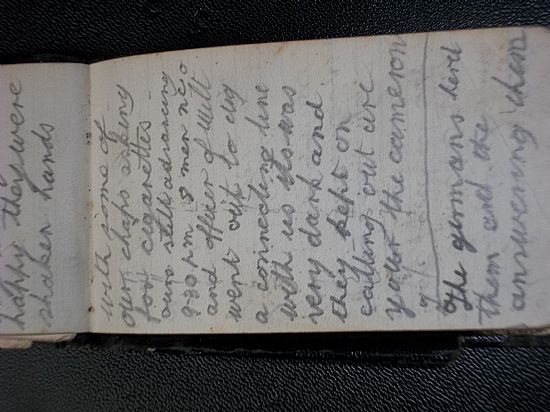 happy they were
shaken hands
with some of
our chaps asking
for cigarettes.
ours still advancing
9.30 pm 12 men nco
and officer of Wilt
went out to dig
a connecting line
with us its was
very dark and
they kept on
calling out are
your the cameron
The germans herd
them and the
answering them